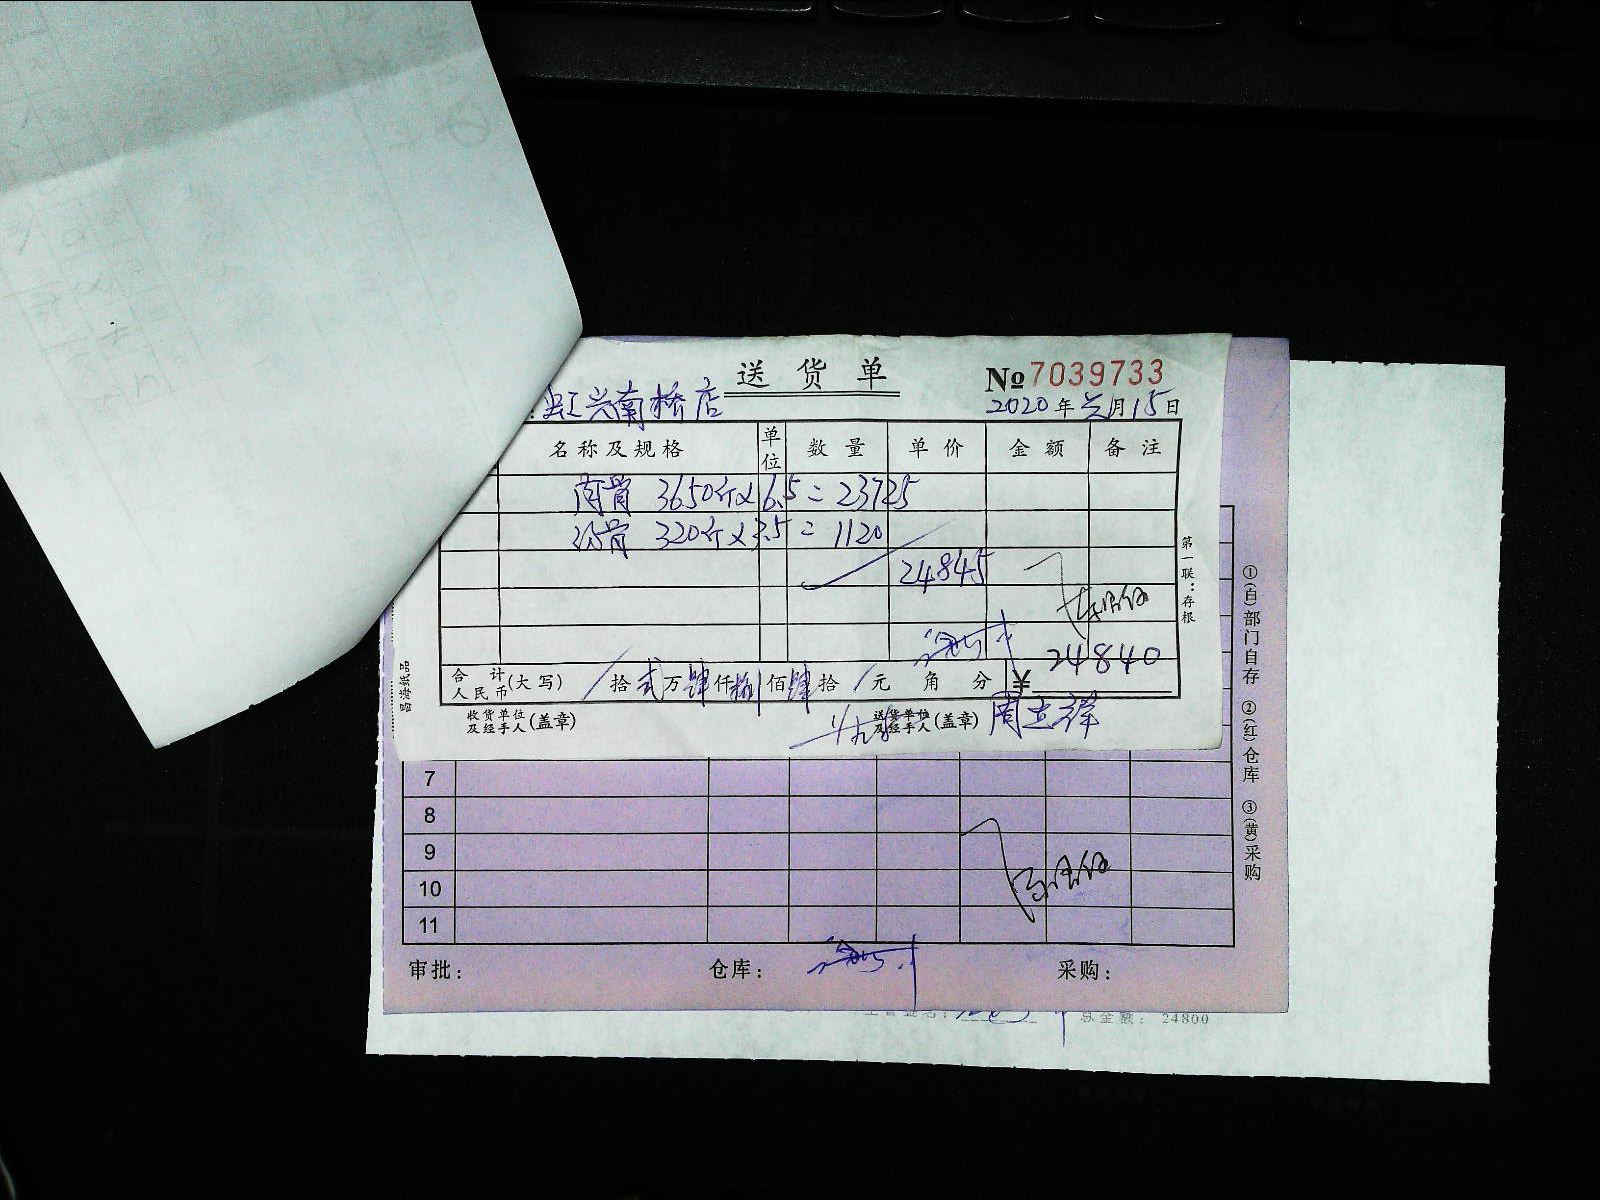 送货单
№7039733
虹兴南桥店
2020年 月15日
名称及规格 单位 数量 单价 金额 备注
肉骨 3650斤×6.5=23725
汤骨 320斤×3.5=1120
24845
24840
合计人民币(大写) / 拾贰万肆仟捌佰肆拾/元 角 分 ¥
收货单位及经手人(盖章)
送货单位及经手人(盖章) 周
第一联：存根
7
8
9
10
11
审批： 仓库： 采购：
①(白)部门自存 ②(红)仓库 ③(黄)采购
总金额： 24800